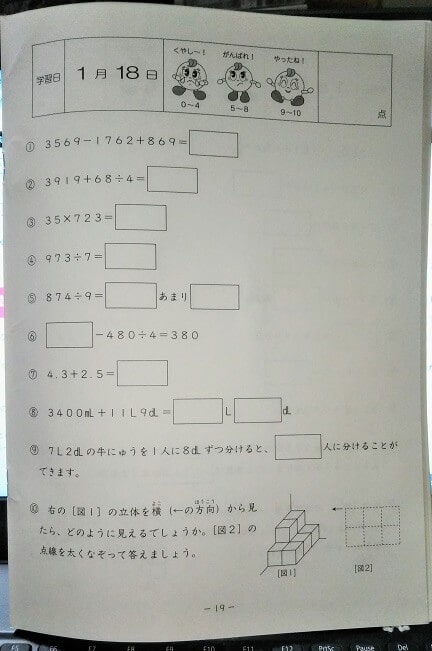 学習日
1月18日
くやし〜!
がんばれ!
やったね!
0〜4
5〜8
9〜10
点
① 3569−1762+869=
② 3919+68÷4=
③ 35×723=
④ 973÷7=
⑤ 874÷9= あまり
⑥ −480÷4=380
⑦ 4.3+2.5=
⑧ 3400mL+11L9dL= L dL
⑨ 7L2dLの牛にゅうを1人に8dLずつ分けると、 人に分けることが
できます。
⑩ 右の[図1]の立体を横(←の方向)から見
よこ
ほうこう
たら、どのように見えるでしょうか。[図2]の
点線を太くなぞって答えましょう。
[図1]
[図2]
−19−
F5
F9
F10
F11
F12
PrtSc
Pause
Del